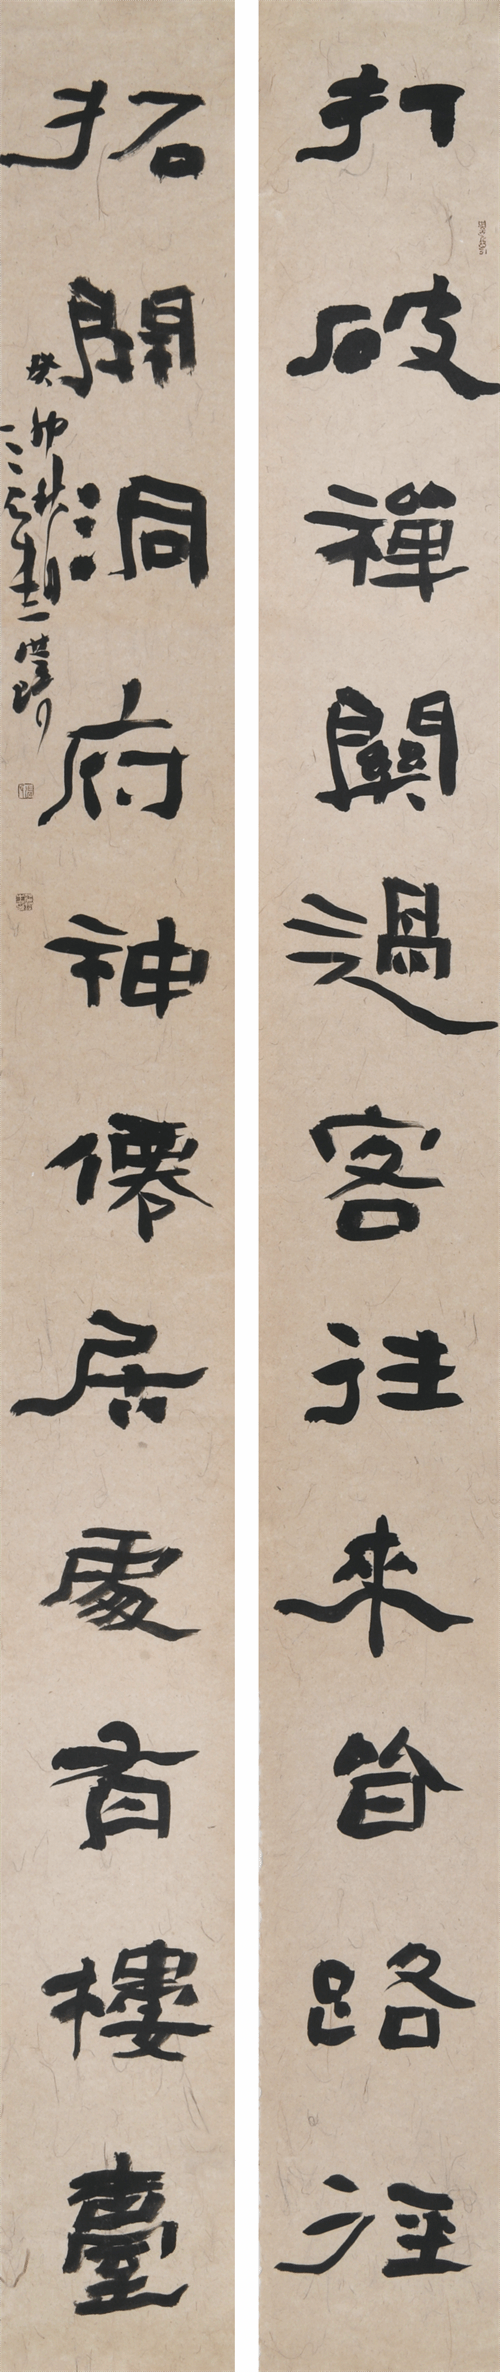 打破禪關過客往來皆路徑
拓開洞府神僊居處有樓臺
癸卯秋朔